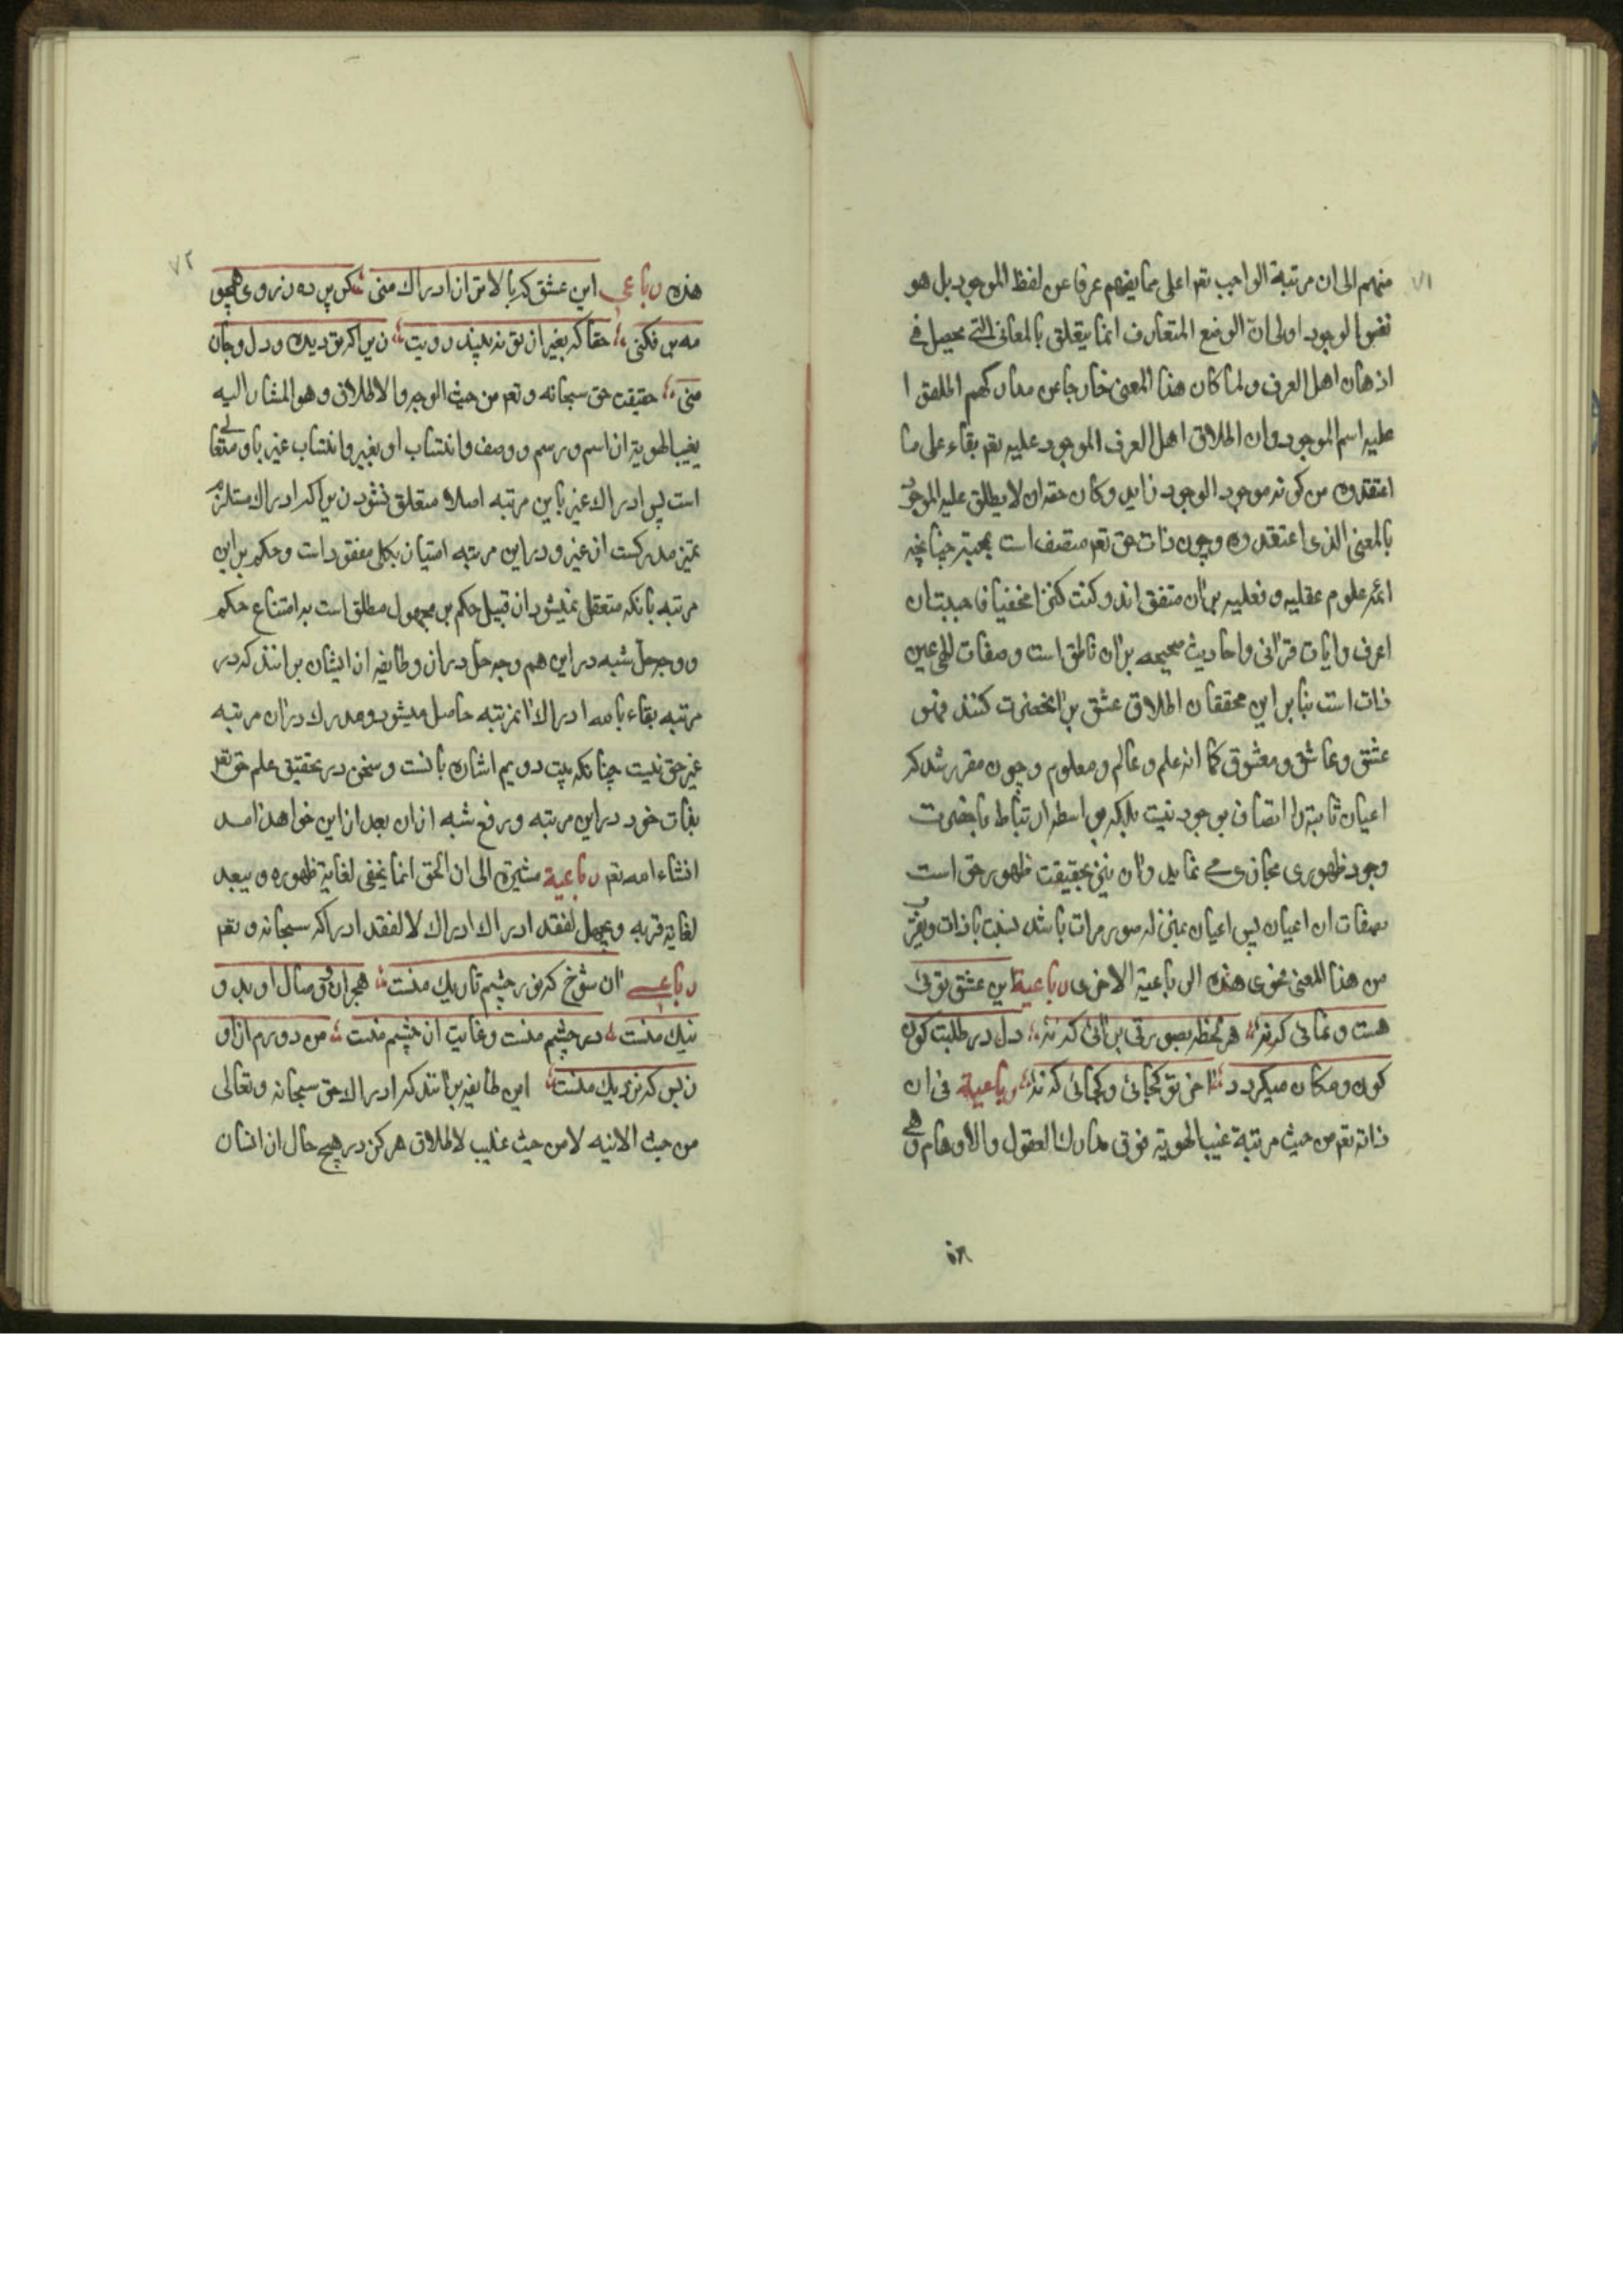 ٧١
منهم الی ان مرتبة الواجب تعم اعلی مما یفهم عرفا عن لفظ الموجود بل هو
نفس الوجود اولی ان الوضع المتعارف انما یتعلق بالمعانی التی یحصل فی
اذهان اهل العرف و لما کان هذا المعنی خارجا عن مدارکهم
علیه اسم الموجود وان اطلاق اهل العرف الموجود علیه تعم بقاء علی ما
اعتقدوه من کونه موجود الوجود زاید وکان حقه ان لا یطلق علیه الموجود
بالمعنی الذی اعتقدوه و چون ذات حق تعم متصف است بمحبت چنانچه
ائمه علوم عقلیه و نقلیه بران متفق اند و کنت کنزا مخفیا فاحببت ان
اعرف وایات قرانی واحادیث صحیحه بران ناطق است وصفات الهی عین
ذات است بنا بر این محققان اطلاق عشق بر انحضرت کنند فهو
عشق وعاشق ومعشوق کما انه علم وعالم ومعلوم وچون مقرر شد که
اعیان ثابته را اتصاف بوجود نیست بلکه بواسطه ارتباط با حضرت
وجود ظهوری مجازی می نماید وان نیز بحقیقت ظهور حق است
بصفات ان اعیان پس اعیان بمنزله صور مرات باشد نسبت بذات
من هذا المعنی فحوی هذه الرباعیة الاخری رباعیة این عشق توئی
هست ونمائی که نه هر لحظه بصورتی برائی که نه دل در طلبت کون
کون ومکان میکردد اخر تو کجائی وکجائی که نه رباعیة فی ان
ذاته تعم من حیث مرتبة غیب الهویة فوق مدارک العقول والاوهام وهی
٧٢
هذه رباعی این عشق که بالاتر از ادراک منی کس پرده ز روی همچو
مه بر فکنی حقا که بغیر از تو نه بیند رویت زیرا که تو دیده ودل وجان
منی حقیقت حق سبحانه وتعم من حیث الوجود والاطلاق وهو المشار الیه
بغیب الهویة از اسم ورسم ووصف وانتساب او بغیر وانتساب غیر باو متعالی
است پس ادراک غیر باین مرتبه اصلا متعلق نشود زیرا که ادراک مستلزم
تمیز مدرکست از غیر ودر این مرتبه امتیاز بکلی مفقود است وحکم بر این
مرتبه بانکه متعقل نمیشود از قبیل حکم بر مجهول مطلق است به امتناع حکم
ووجه حل شبه در این هم وجه حل دران وطایفه از ایشان بر انند که در
مرتبه بقاء بالله ادراک انمرتبه حاصل میشود ومدرک دران مرتبه
غیر حق نیست چنانکه بیت دویم اشاره بانست وسخن در تحقیق علم حق تعم
بذات خود در این مرتبه ورفع شبه ازان بعد از این خواهد امد
انشاء الله تعم رباعیة مشیرة الی ان الحق انما یخفی لغایة ظهوره ویبعد
لغایة قربه ویجهل لفقد ادراک ادراک لا لفقد ادراکه سبحانه وتعم
رباعی ان شوخ که نور چشم تاریک منست هجران ووصال او بد و
نیک منست در چشم منست وغایب از چشم منست من دورم از او
ز بس که نزدیک منست این طایفه بر انند که ادراک حق سبحانه وتعالی
من حیث الانیه لا من حیث غلیب لاطلاق هرکز در هیچ حال از انسان